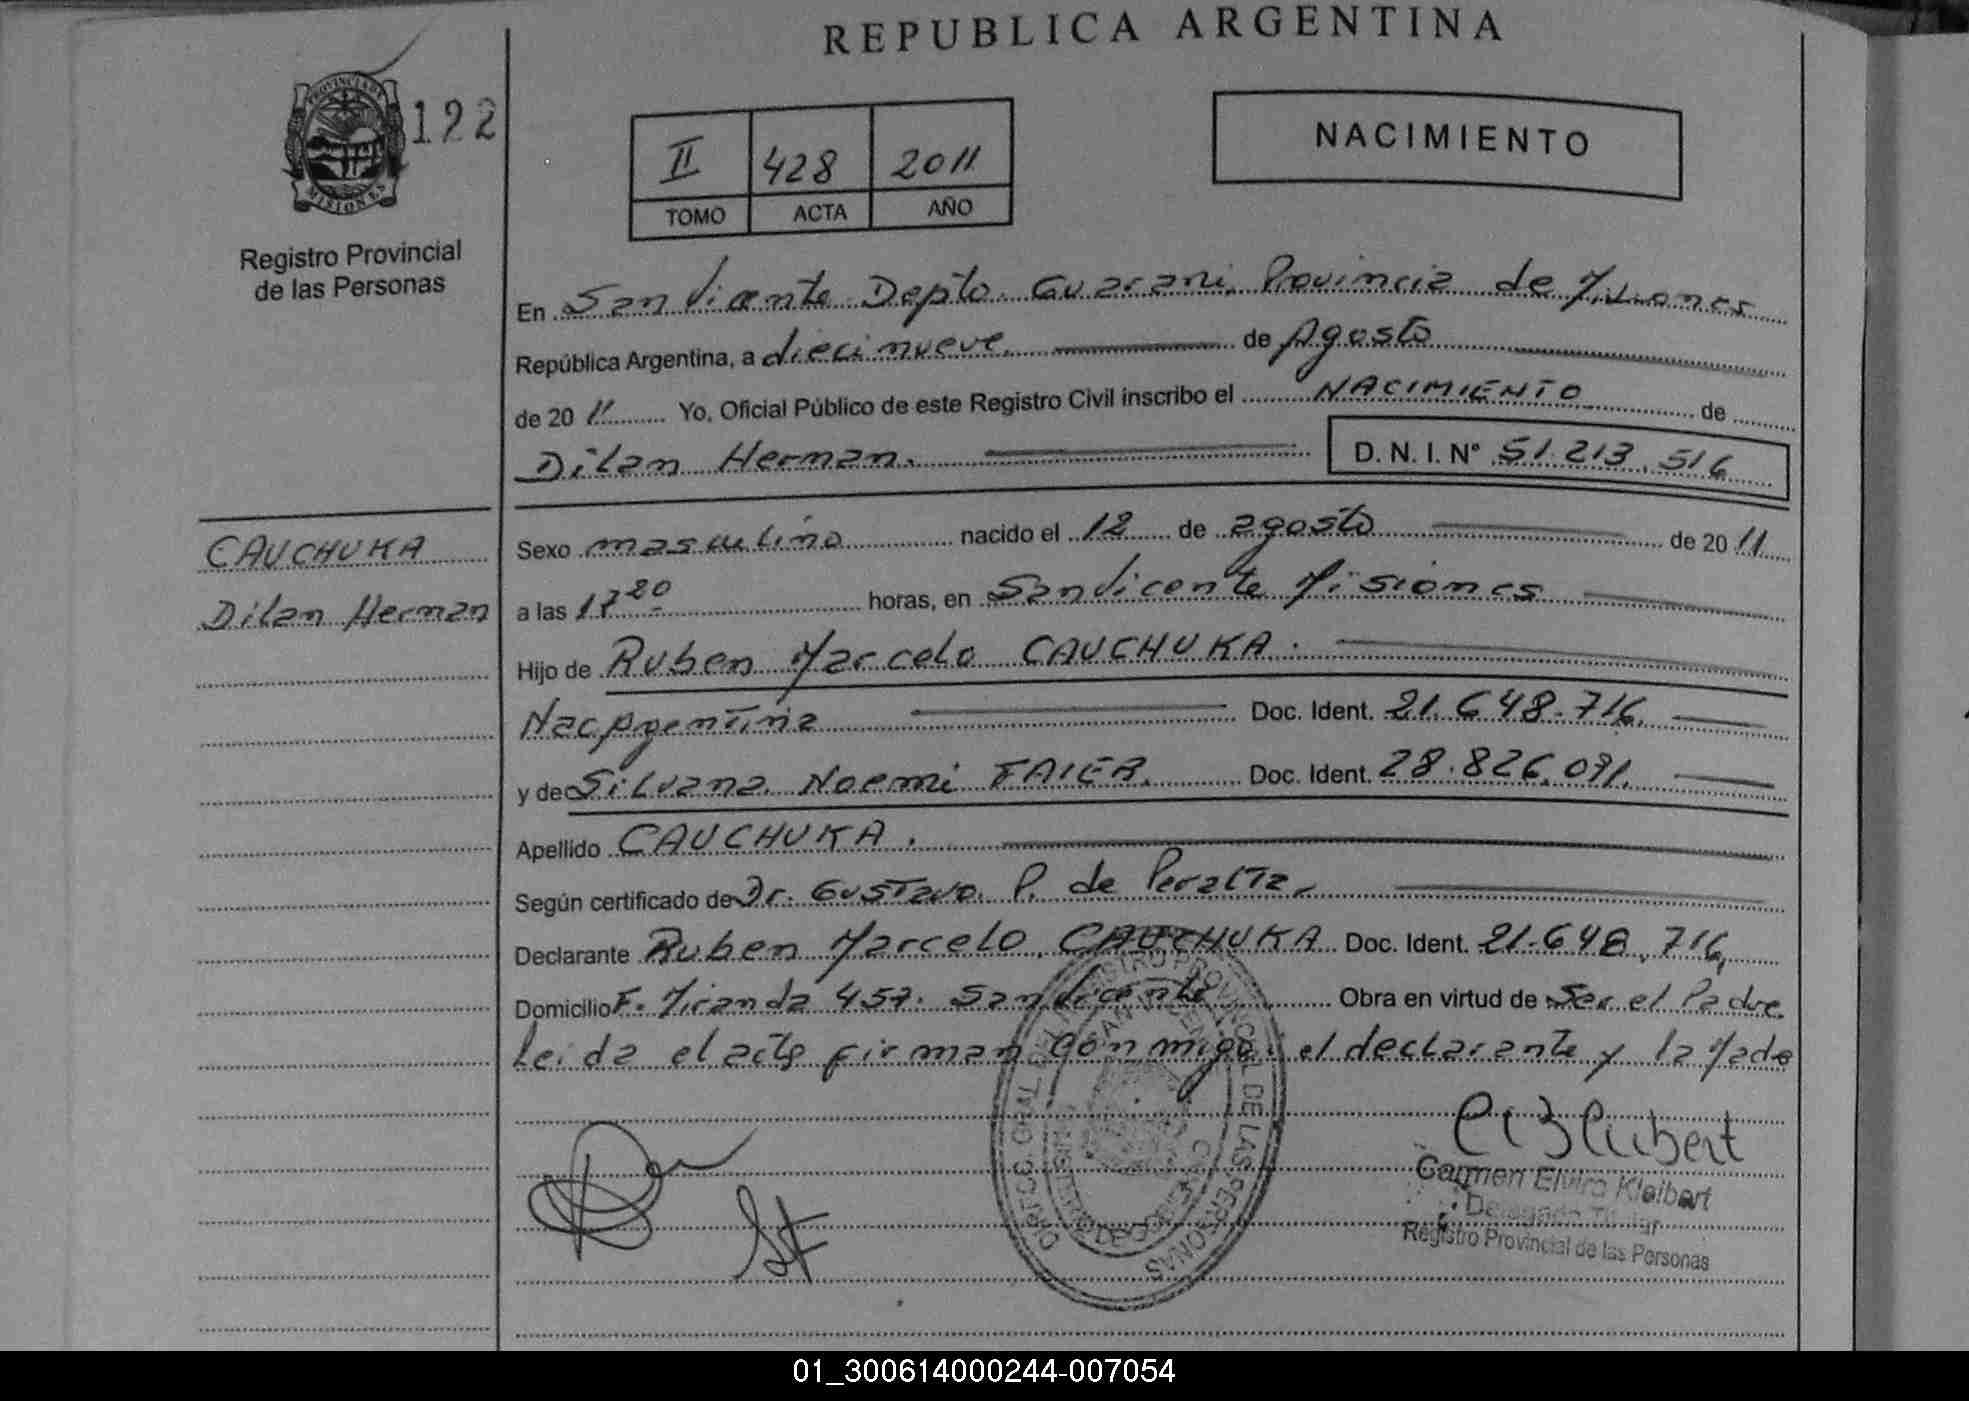 REPUBLICA ARGENTINA
PROVINCIA DE
MISIONES
122
Registro Provincial
de las Personas
II 428 2011
TOMO ACTA AÑO
NACIMIENTO
En San Vicente Depto. Guarani, Provincia de Misiones
República Argentina, a diecinueve de Agosto
de 20 11 Yo, Oficial Público de este Registro Civil inscribo el NACIMIENTO de
Dilan Herman. D. N. I. N° 51.213.516
CAUCHUKA
Dilan Herman
Sexo masculino nacido el 12 de agosto de 20 11
a las 17 20 horas, en San Vicente Misiones
Hijo de Ruben Marcelo CAUCHUKA.
Nac Argentina Doc. Ident. 21.648.716.
y de Silvana Noemi FAIER. Doc. Ident. 28.826.091.
Apellido CAUCHUKA.
Según certificado de Dr. Gustavo P. de Peralta.
Declarante Ruben Marcelo CAUCHUKA Doc. Ident. 21.648.716,
Domicilio F. Miranda 457. San Vicente Obra en virtud de Ser el Padre.
Leida el acta firman conmigo, el declarante y la Madre
Carmen Elvira Kleibert
Delegada Titular
Registro Provincial de las Personas
01_300614000244-007054